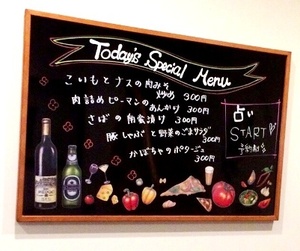 Today's Special Menu
こいもとナスの肉みそ
炒め 300円
肉詰めピーマンの
あんかけ 300円
さばの南蛮漬け 300円
豚しゃぶと野菜のごまサラダ
300円
かぼちゃのポタージュ
300円
占い
START